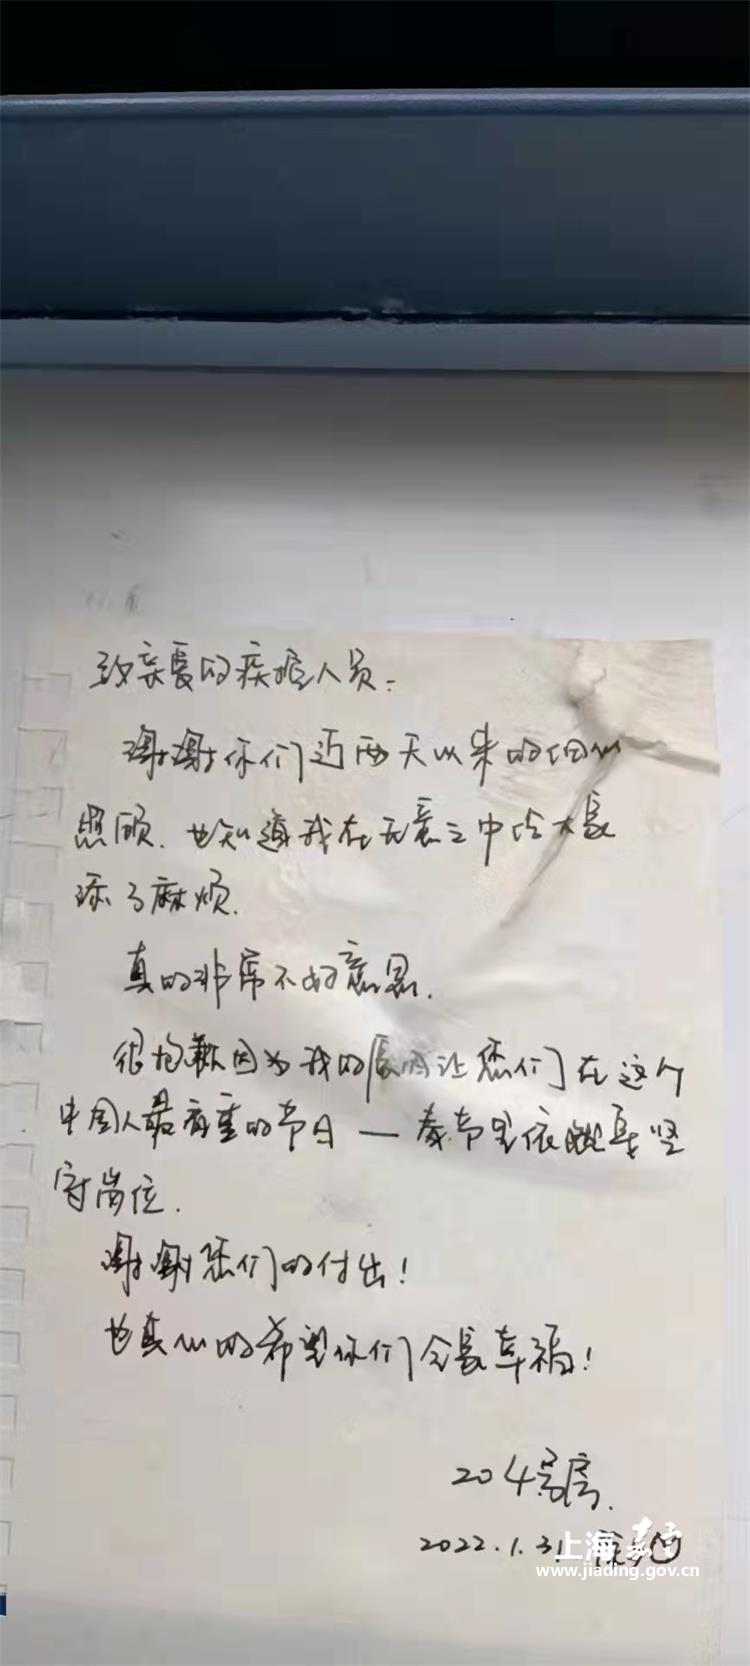 致亲爱的疾控人员：
谢谢你们近两天以来的细心
照顾，也知道我在无意之中给大家
添了麻烦。
真的非常不好意思。
很抱歉因为我的原因让您们在这个
中国人最看重的节日——春节里依然要坚
守岗位。
谢谢您们的付出！
也真心的希望你们全家幸福！
204号房.
2022.1.31
上海嘉定
www.jiading.gov.cn